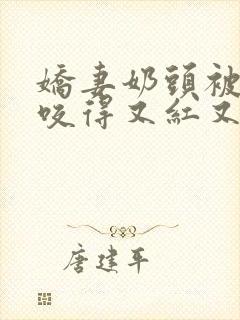 嬌妻奶頭被
咬得又紅又
唐建平